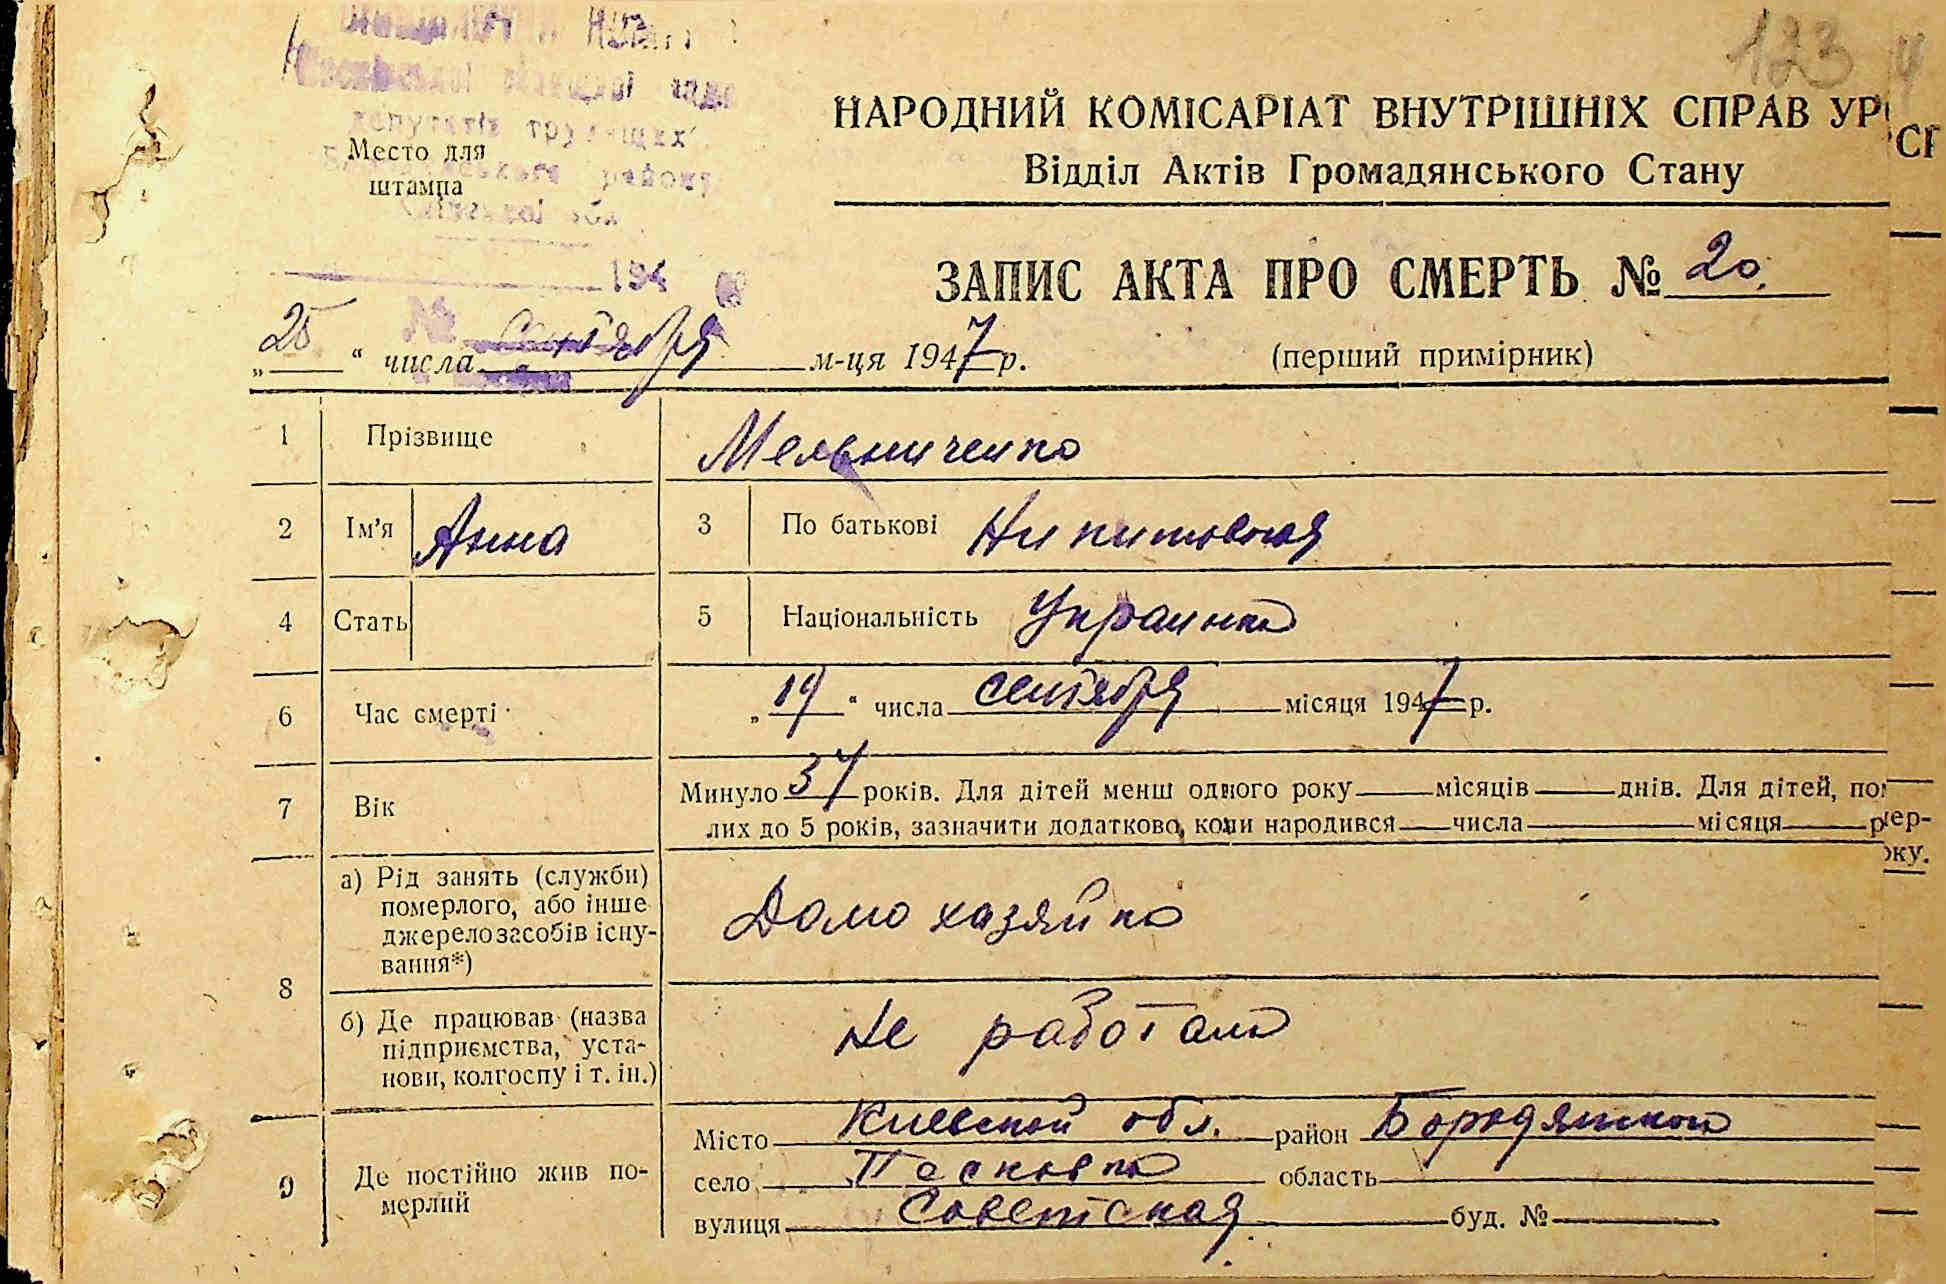 123
депутатів трудящих
району
Место для
штампа
194
НАРОДНИЙ КОМІСАРІАТ ВНУТРІШНІХ СПРАВ УР
СР
Відділ Актів Громадянського Стану
ЗАПИС АКТА ПРО СМЕРТЬ № 20.
„25“ числа сентября м-ця 1947 р.
(перший примірник)
1 Прізвище Мельниченко
2 Ім'я Анна 3 По батькові Никитовная
4 Стать 5 Національність Украинка
6 Час смерті „19“ числа сентября місяця 1947 р.
7 Вік Минуло 37 років. Для дітей менш одного року місяців днів. Для дітей, по
лих до 5 років, зазначити додатково, коли народився числа місяця р
мер-
оку.
8 а) Рід занять (служби)
померлого, або інше
джерело засобів існу-
вання*)
Домохазяйка
б) Де працював (назва
підприємства, уста-
нови, колгоспу і т. ін.)
Не работала
9 Де постійно жив по-
мерлий
Місто Киевской обл. район Бородянского
село Песковка область
вулиця Советская буд. №